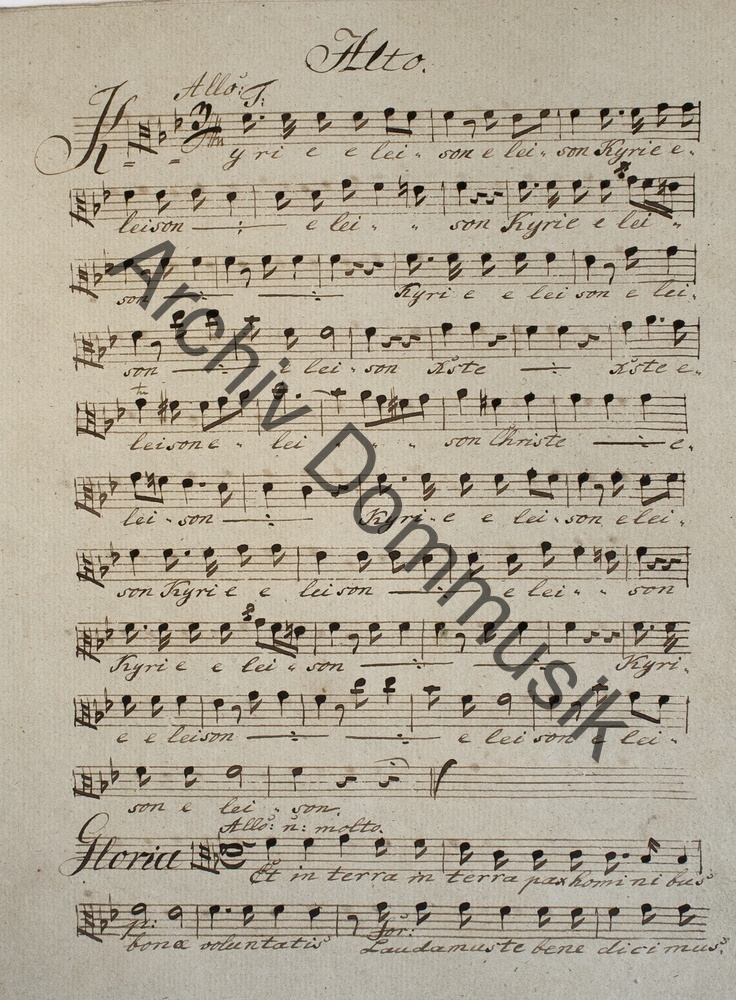 Alto.
Allo: T:
Kyrie e lei - son e lei - son Kyrie e -
leison e lei - - son Kyrie e lei -
son Kyri e e lei son e lei -
son e lei - son Xste Xste e -
leison e - lei - - - son Christe e -
lei - son Kyri - e e lei - son e lei -
son Kyri e e lei son e lei - - son
Kyri e e lei - son Kyri -
e e leison e lei son e lei -
son e lei - son.
Allo: n: molto.
Gloria Et in terra in terra pax homini bus
p: for:
bonæ voluntatis Laudamus te bene dicimus
Archiv Dommusik